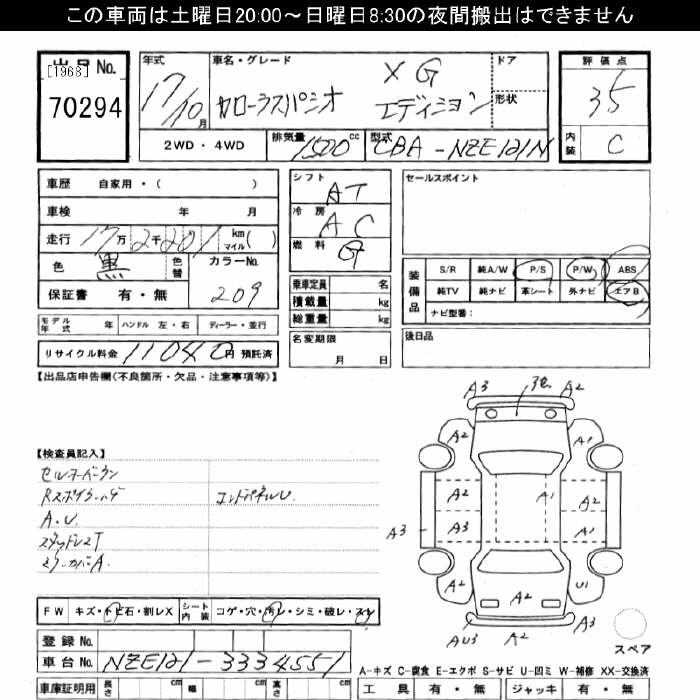 この車両は土曜日20:00～日曜日8:30の夜間搬出はできません
出品No.
[1968]
70294
年式
17/10月
車名・グレード
カローラスパシオ
XG
エディション
ドア
形状
評価点
3.5
内装
C
2WD・4WD
排気量
1500cc
型式
CBA-NZE121N
車歴 自家用・( )
車検 年 月
走行 17万2千201 km マイル( )
色 黒 色替 カラーNo.
保証書 有・無 209
シフト AT
冷房 AC
燃料 G
乗車定員 名
積載量 kg
総重量 kg
名変期限
月 日
セールスポイント
装備品
S/R 純A/W P/S P/W ABS
純TV 純ナビ 革シート 外ナビ エアB
ナビ型番:
後日品
モデル年式 年 ハンドル 左・右 ディーラー・並行
リサイクル料金 11040円 預託済
【出品店申告欄(不良箇所・欠品・注意事項等)】
【検査員記入】
A.U.
コンドパネルU.
A3 A2
A2 A1
A2 A1 A2
A3 A3 A1
A2 A2 U1
AU3 A2 A3
スペア
FW キズ・トビ石・割レX シート内装 コゲ・穴・汚レ・シミ・破レ・スレ
登録No.
車台No. NZE121-3334551
A-キズ C-腐食 E-エクボ S-サビ U-凹ミ W-補修 XX-交換済
車庫証明用 長さ cm 幅 cm 高さ cm
工具 有・無 ジャッキ 有・無